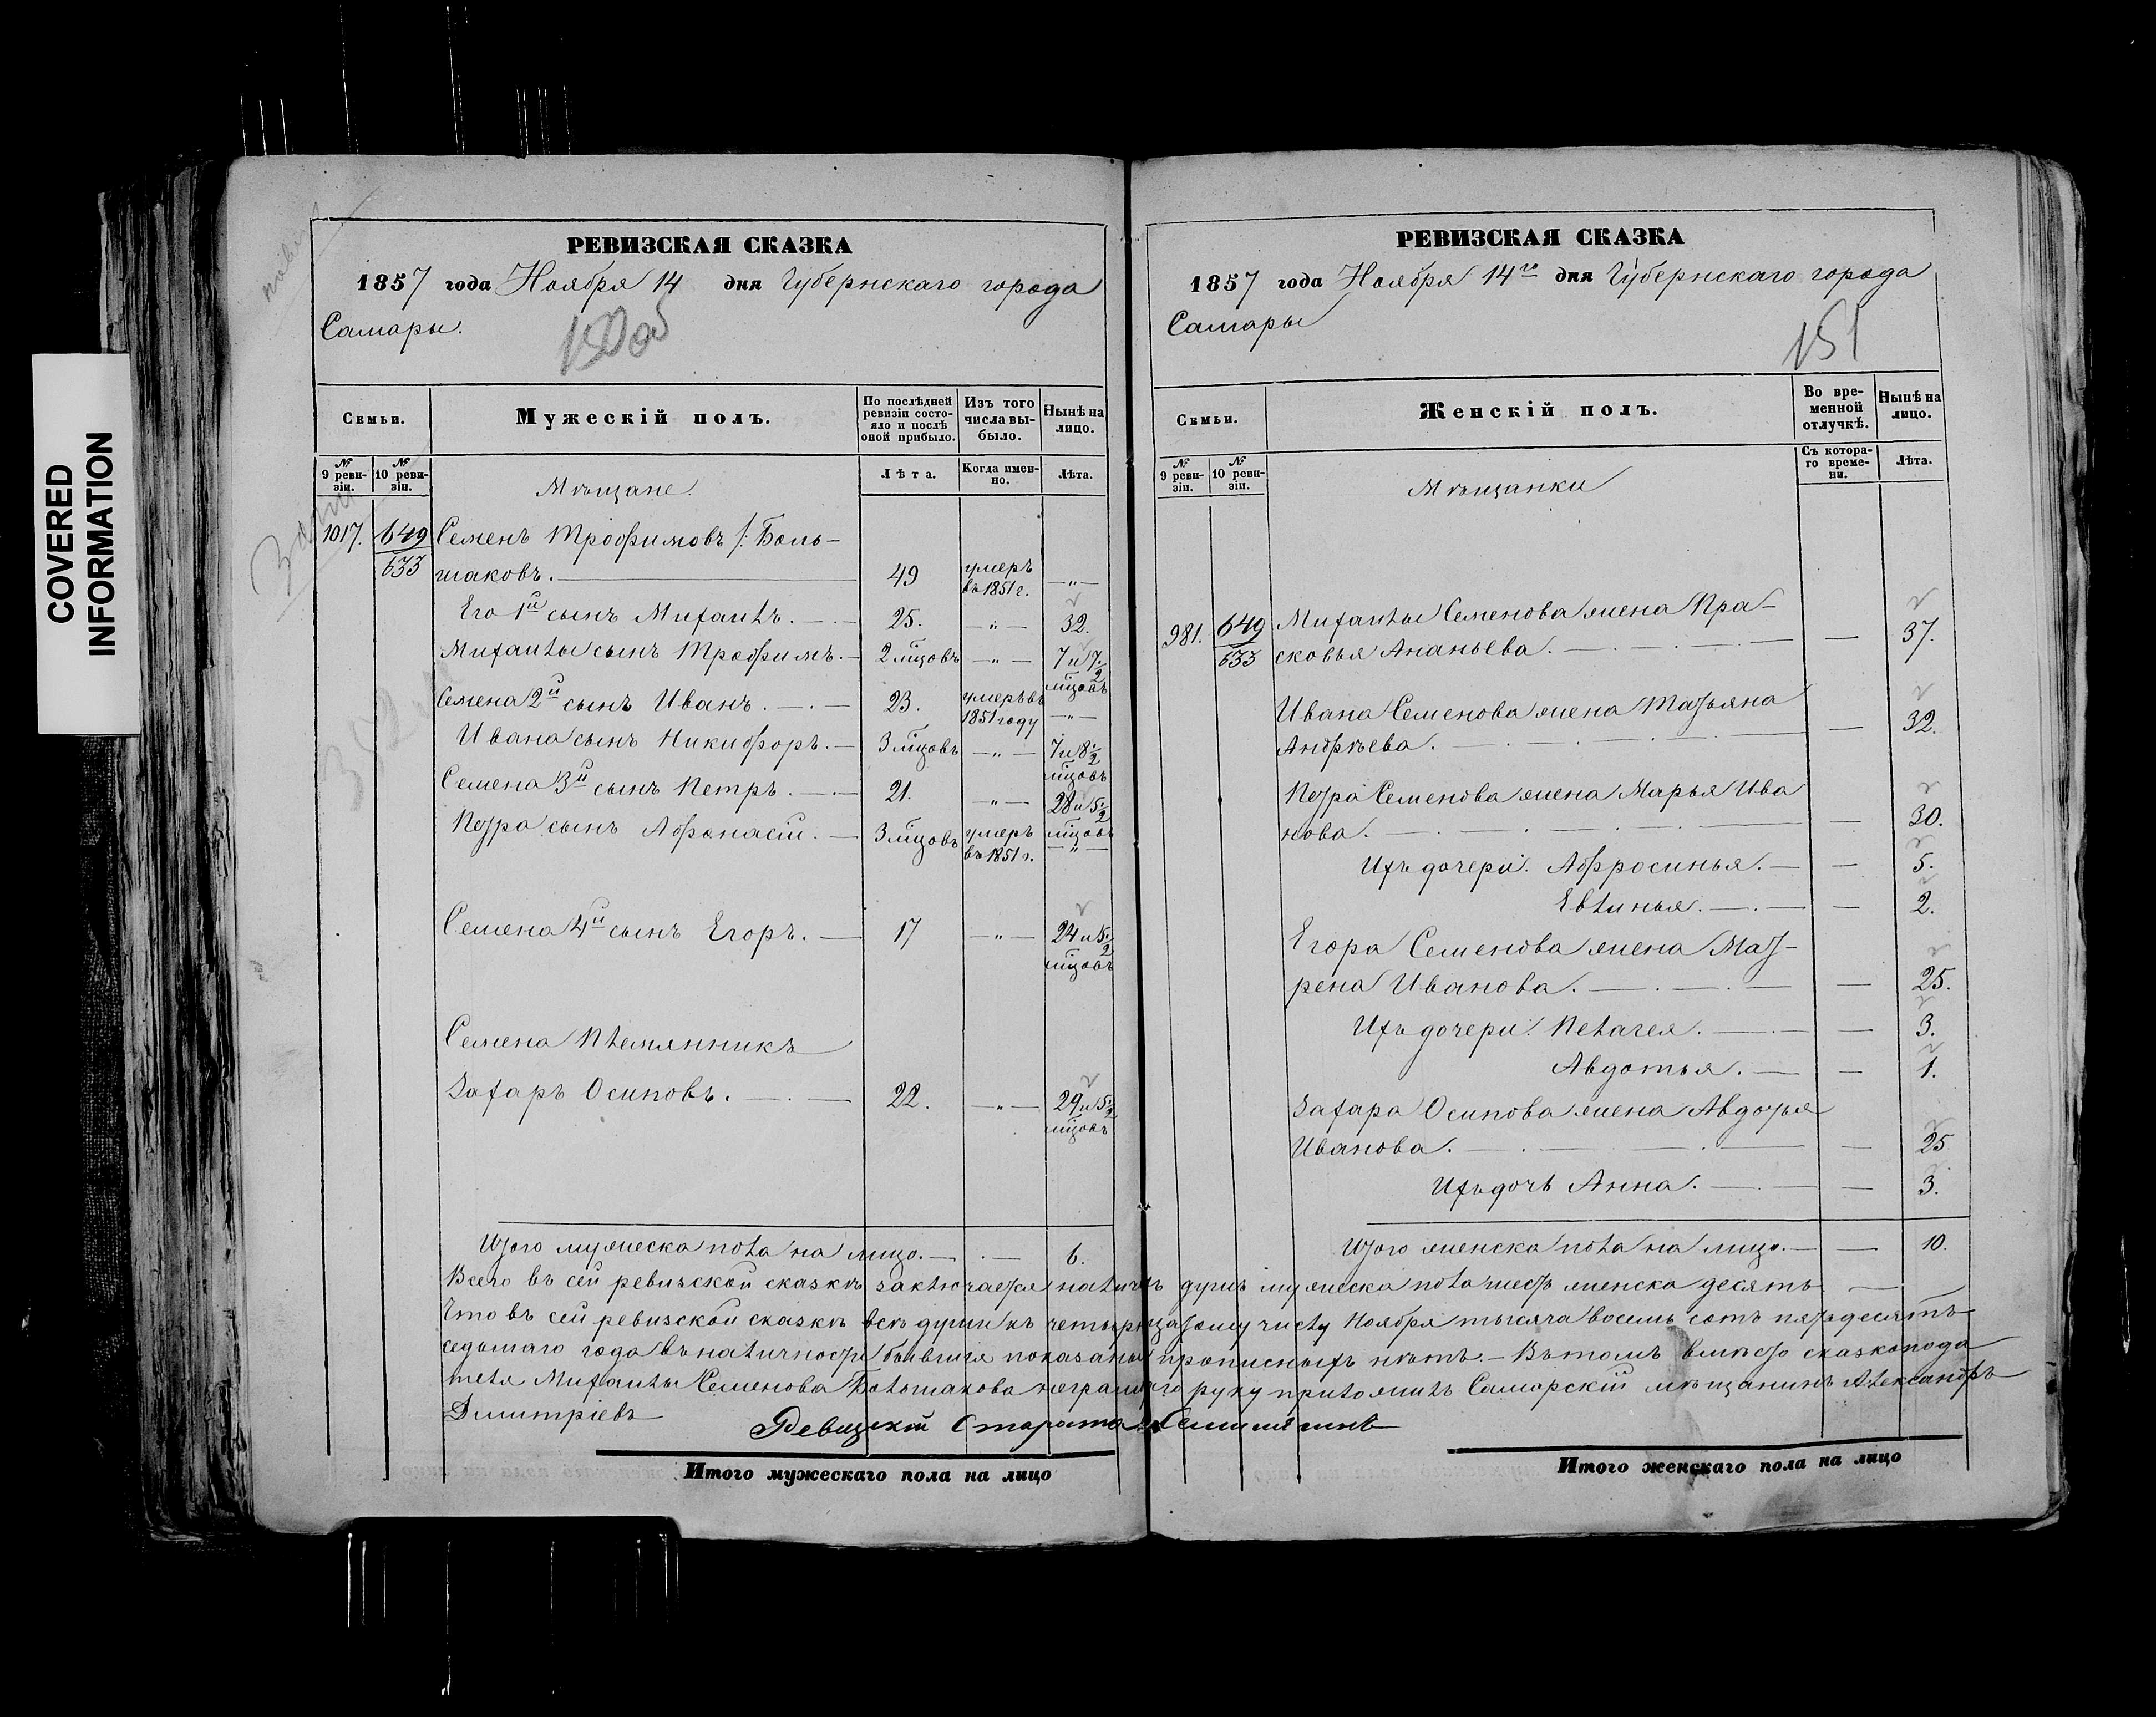 COVERED
INFORMATION
РЕВИЗСКАЯ СКАЗКА
1857 года Ноября 14 дня Губернскаго города
Самары.
150об
Семьи.
Мужескій полъ.
По послѣдней ревизіи состояло и послѣ оной прибыло.
Изъ того числа выбыло.
Нынѣ на лицо.
№ 9 ревизіи.
№ 10 ревизіи.
Мѣщане.
Лѣта.
Когда именно.
Лѣта.
1017. 649 Семенъ Трофимовъ /: Боль-
633 шаковъ. 49 умеръ въ 1851 г. — " —
Его 1й сынъ Михаилъ. 25. — " — 32.
Михаилы сынъ Трофимъ. 2 мцовъ — " — 7 и 7 1/2 мцовъ
Семена 2й сынъ Иванъ. 23. умеръ въ 1851 году — " —
Ивана сынъ Никифоръ. 3 мцовъ — " — 7 и 8 1/2 мцовъ
Семена 3й сынъ Петръ. 21. — " — 28 и 5 1/2 мцовъ
Петра сынъ Афонасій. 3 мцовъ умеръ въ 1851 г. — " —
Семена 4й сынъ Егоръ. 17 — " — 24 и 5 1/2 мцовъ
Семена племянникъ
Захаръ Осиповъ. 22. — " — 29 и 5 1/2 мцовъ
Итого мужеска пола на лицо. 6.
РЕВИЗСКАЯ СКАЗКА
1857 года Ноября 14го дня Губернскаго города
Самары
151
Семьи.
Женскій полъ.
Во временной отлучкѣ.
Нынѣ на лицо.
№ 9 ревизіи.
№ 10 ревизіи.
Мѣщанки
Съ котораго времени.
Лѣта.
981. 649 Михаилы Семенова жена Пра-
633 сковья Ананьева. — 37.
Ивана Семенова жена Татьяна
Андрѣева. — 32.
Петра Семенова жена Марья Ива
нова. — 30.
Ихъ дочери: Афросинья. — 5.
Евлинья. — 2.
Егора Семенова жена Мат-
рена Иванова. — 25.
Ихъ дочери: Пелагея. — 3.
Авдотья. — 1.
Захара Осипова жена Авдотья
Иванова. — 25
Ихъ дочь Анна. — 3.
Итого женска пола на лицо. — 10.
Всего въ сей ревизской сказкѣ заключается наличныхъ душъ мужеска пола шесть женска десять
Что въ сей ревизской сказкѣ всѣ души къ четырнадцатому числу Ноября тысяча восемь сотъ пятьдесятъ
седьмаго года въ наличности бывшія показаны прописныхъ нѣтъ. – Въ томъ вмѣсто сказкопода
теля Михаилы Семенова Большакова неграмотнаго руку приложилъ Самарскій мѣщанинъ Александръ
Дмитріевъ
Ревизскій Староста
Итого мужескаго пола на лицо
Итого женскаго пола на лицо